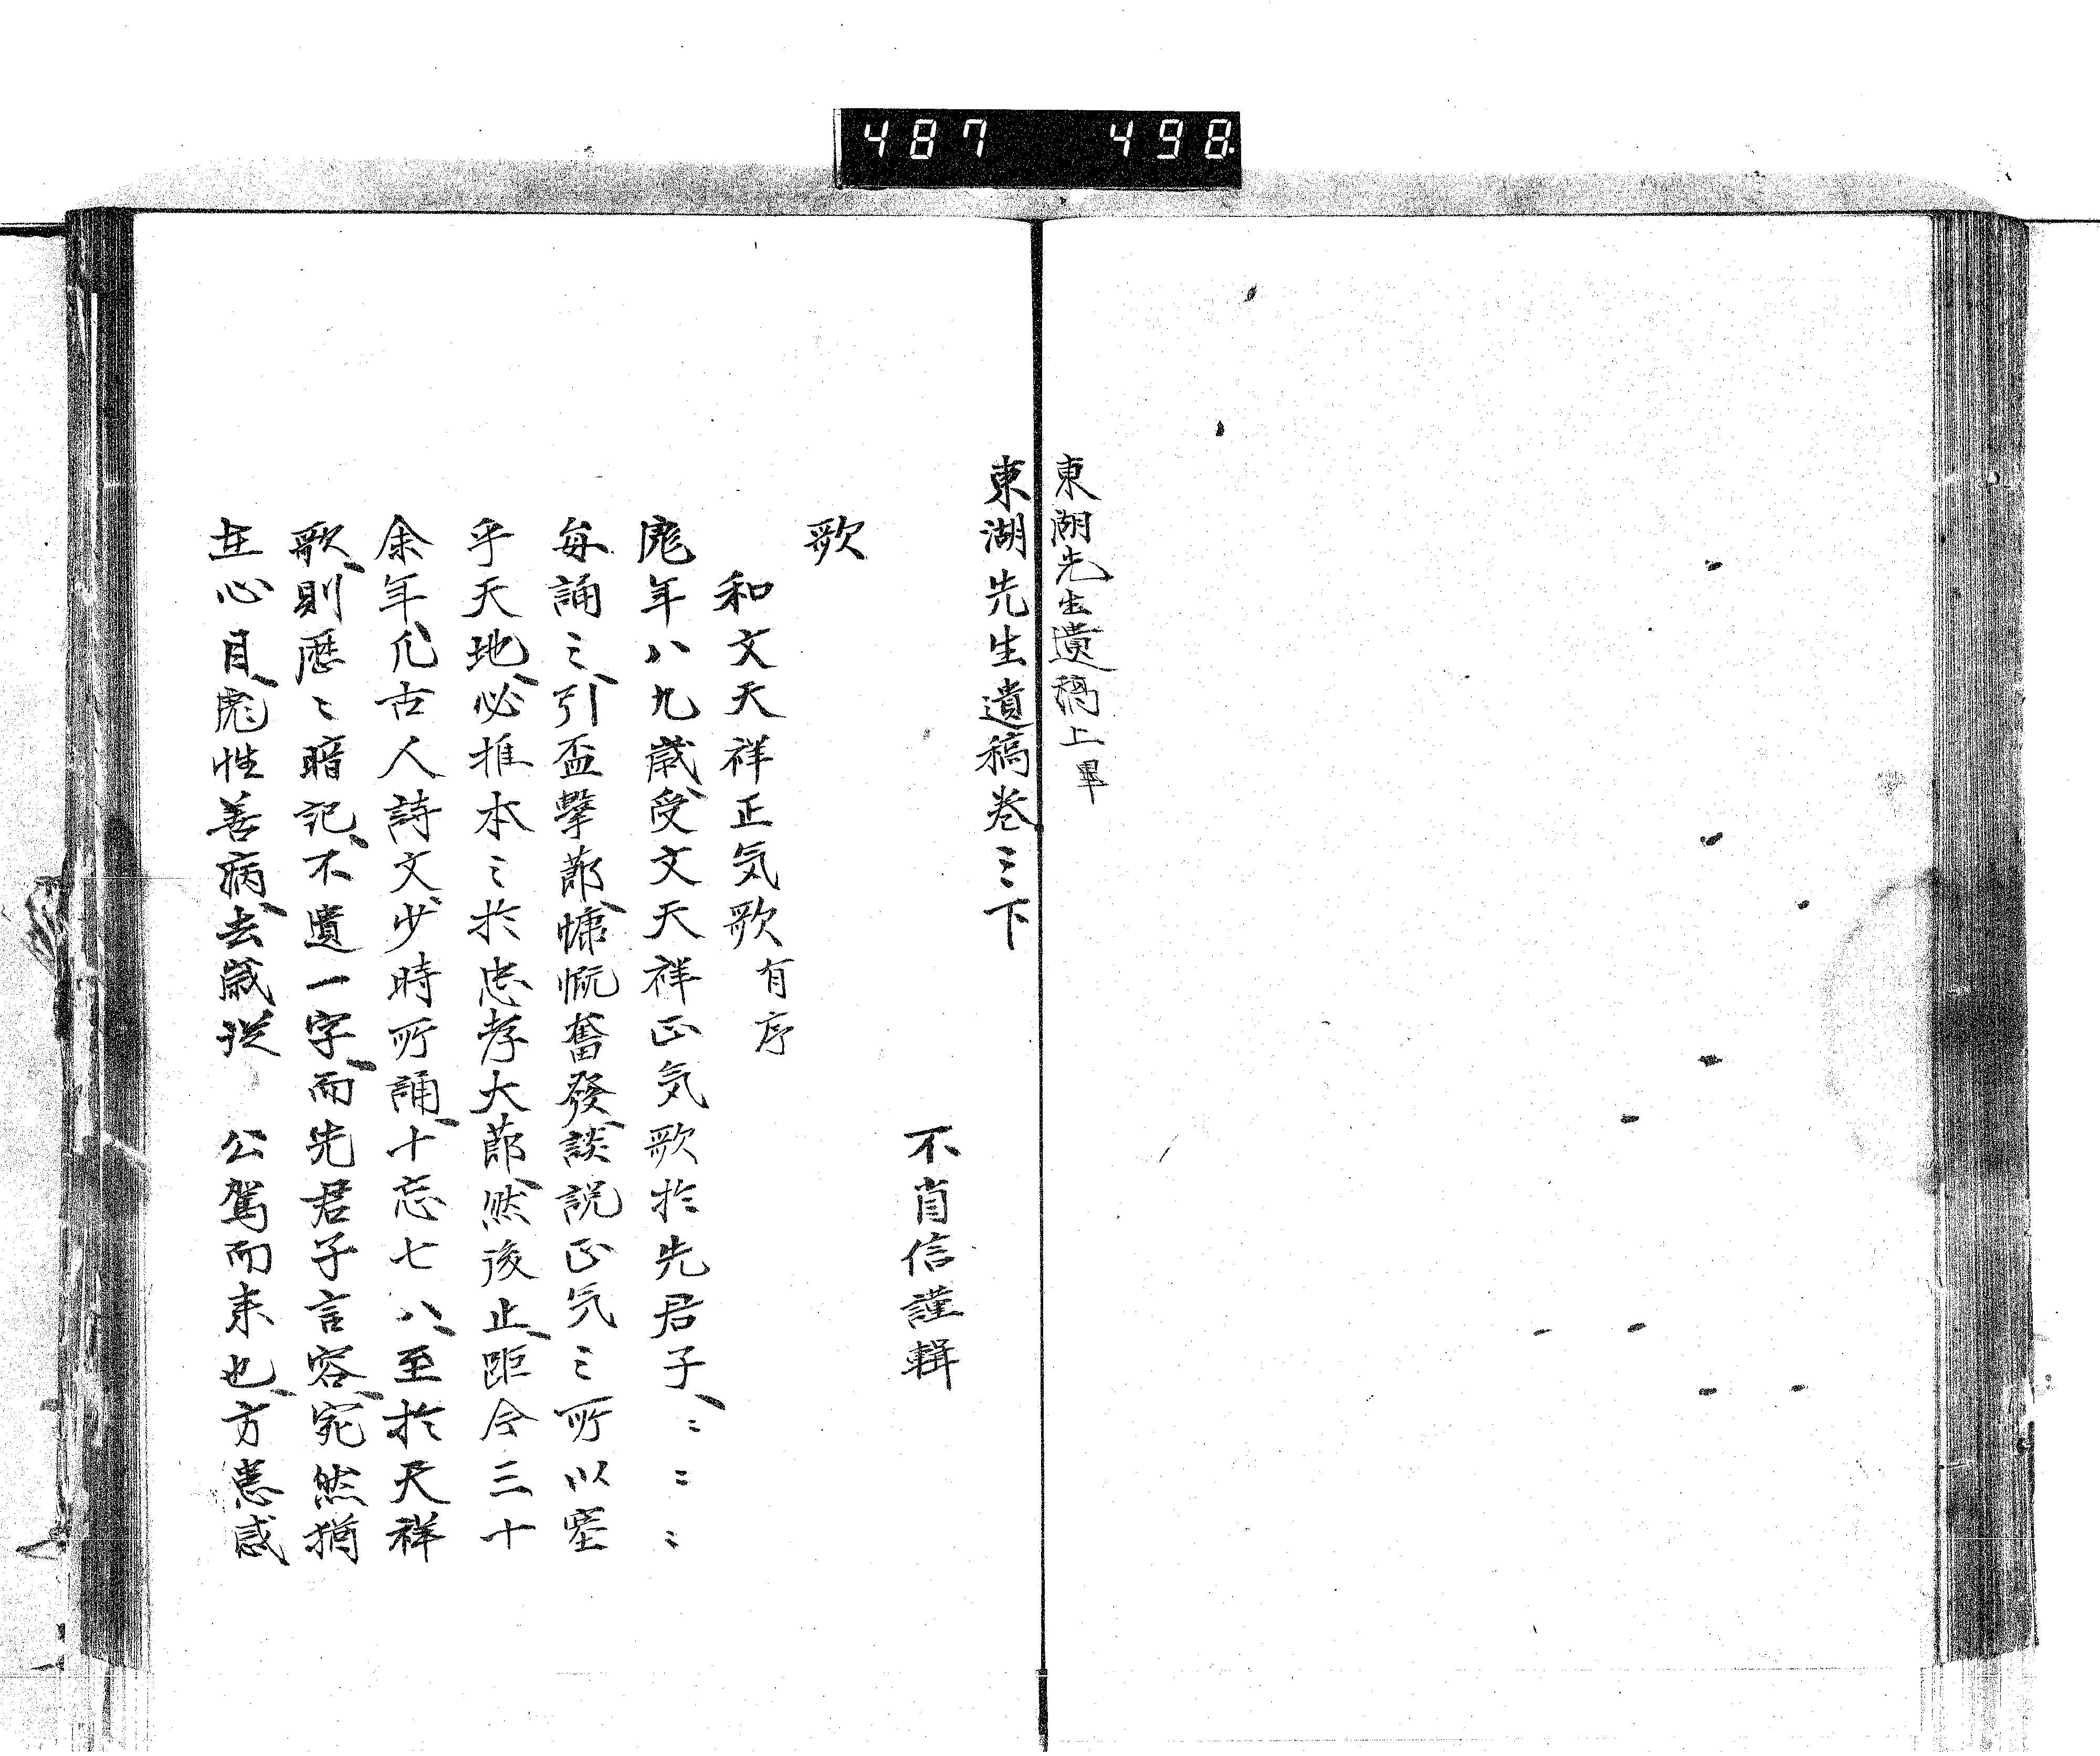 487 498
東湖先生遺稿上畢
東湖先生遺稿卷之下
不肖信謹輯
歌
和文天祥正気歌有序
彪年八九歳、受文天祥正気歌於先君子、〻〻〻
毎誦之、引盃撃莭、慷慨奮發、談説正気之所以塞
乎天地、必推本之於忠孝大莭、然後止、距今三十
余年、凡古人詩文、少時所誦、十忘七八、至於天祥
歌、則歴〻暗記、不遺一字、而先君子言容、宛然猶
在心目、彪性善病、去歳従 公駕而来也、方患感